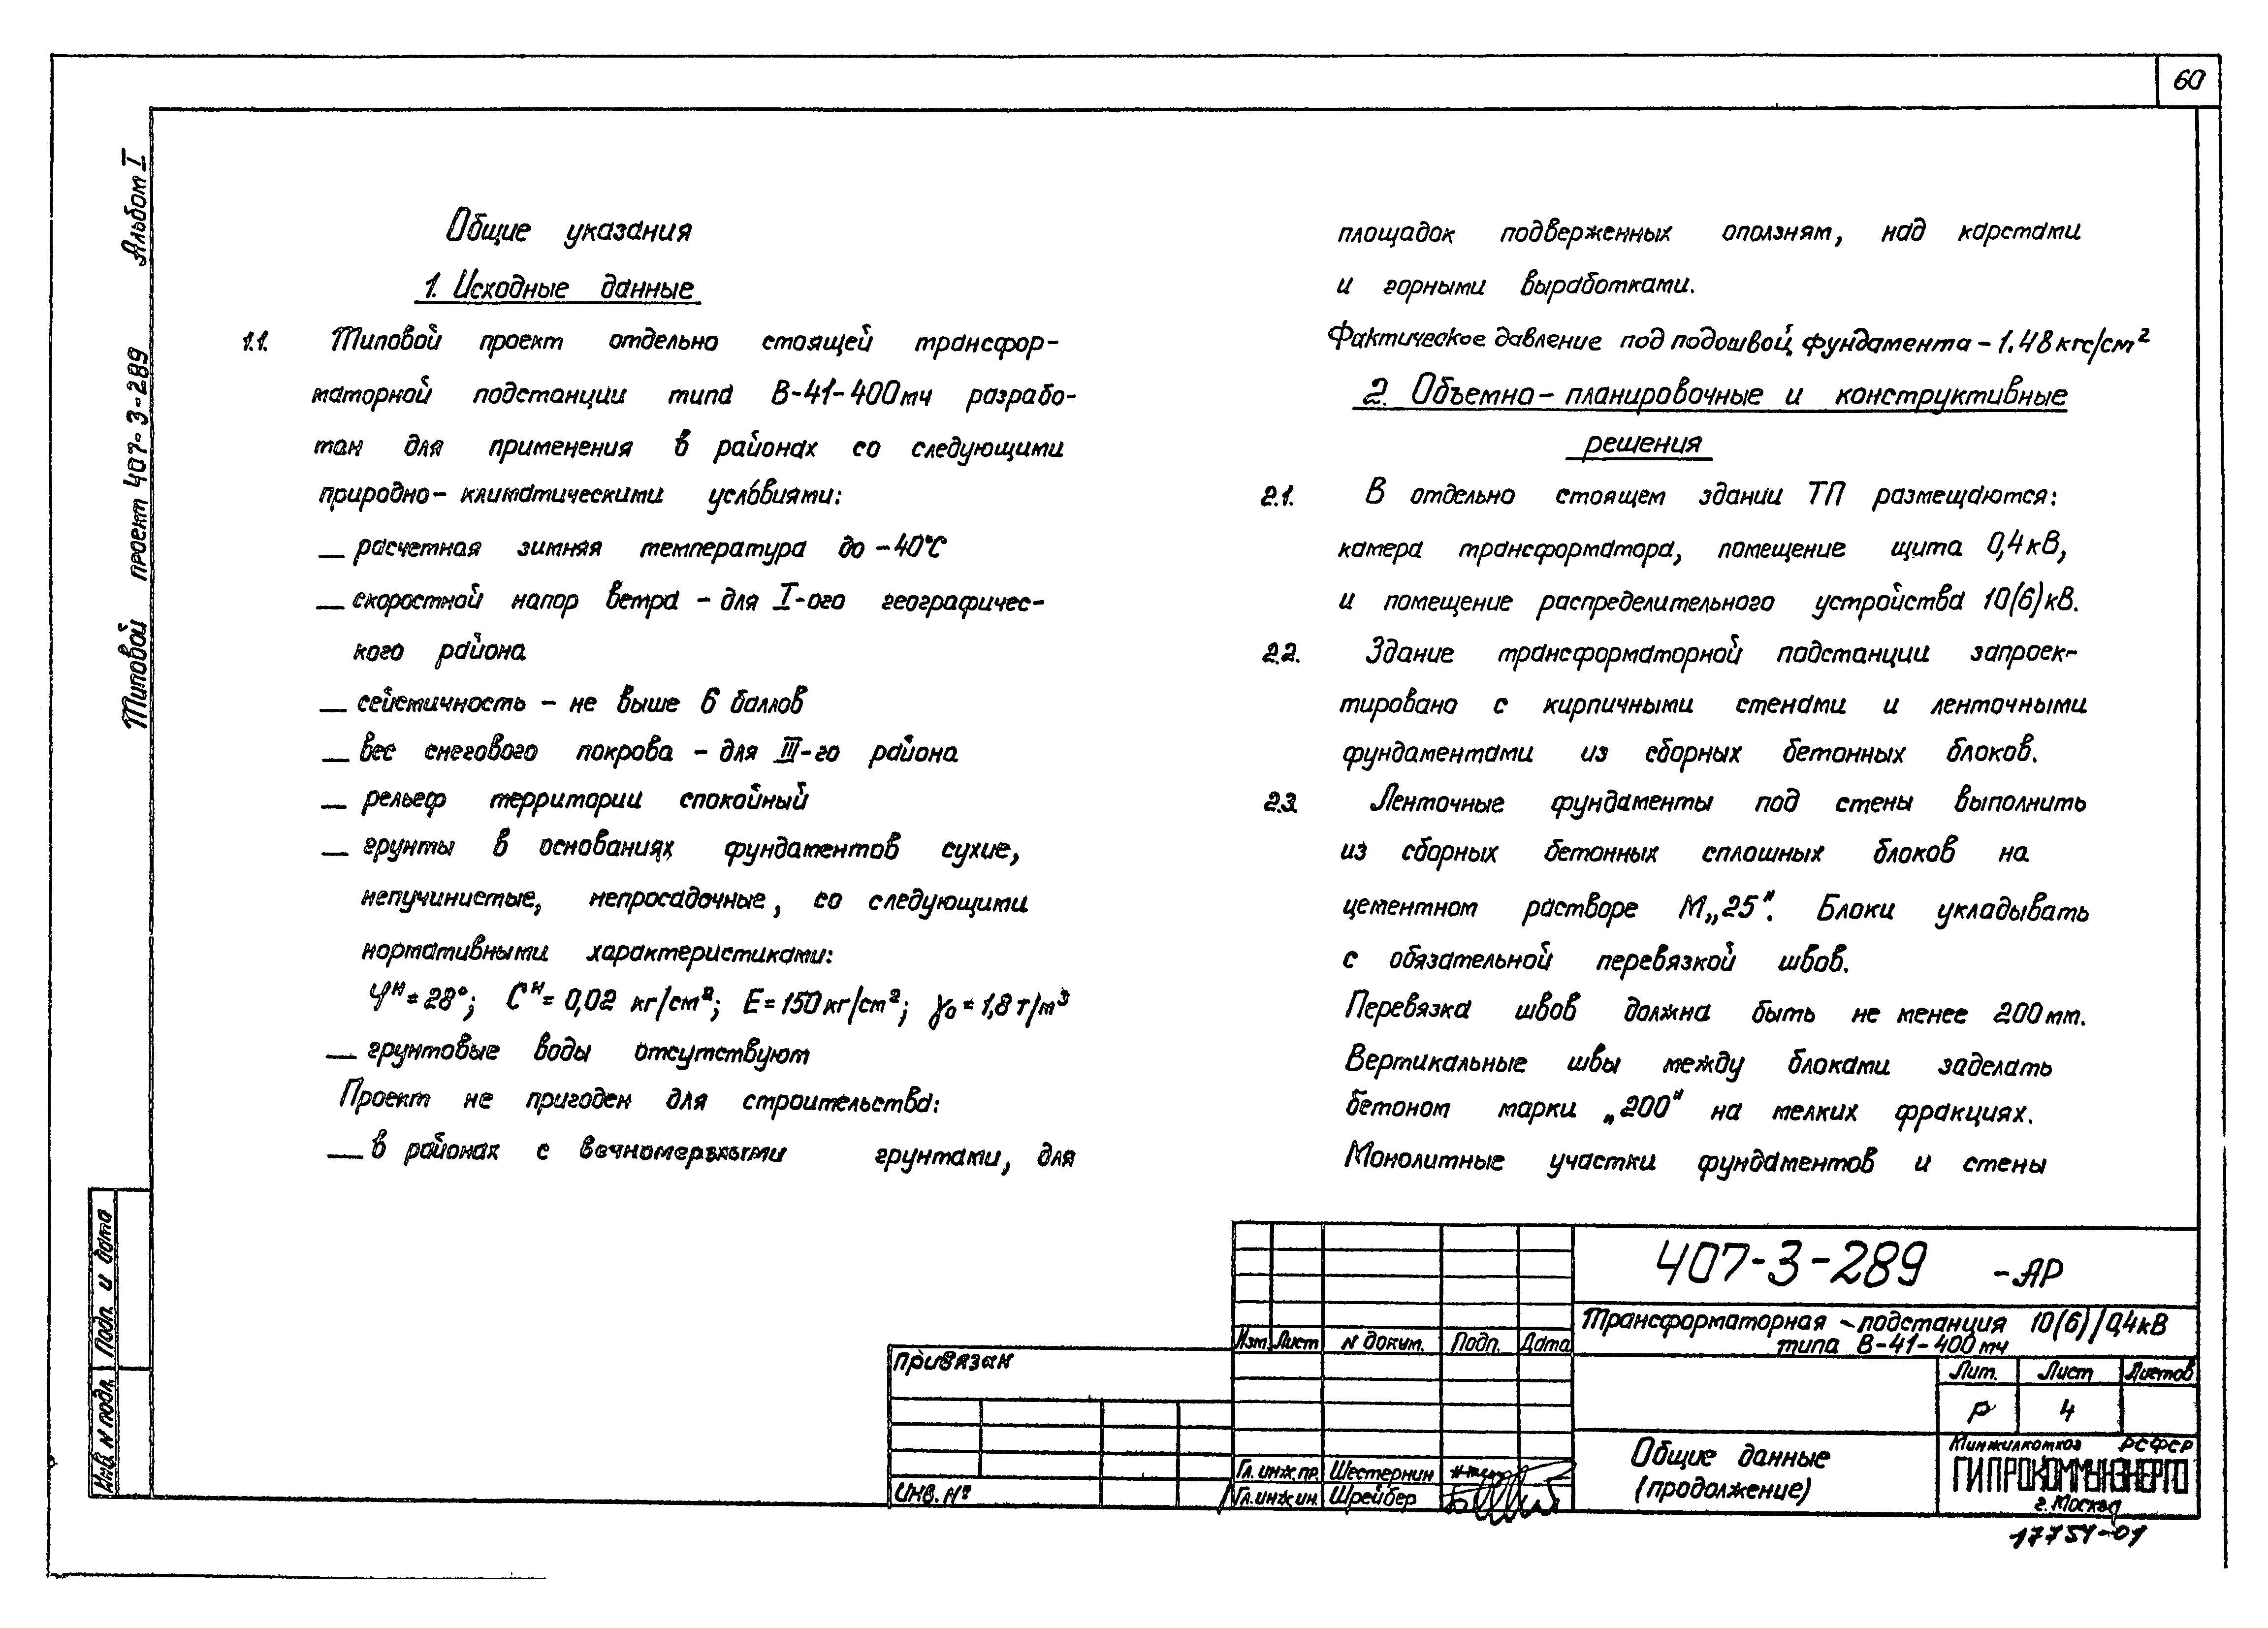 60
Типовой проект 407-3-289 Альбом I
Общие указания
1. Исходные данные
1.1. Типовой проект отдельно стоящей трансфор-
маторной подстанции типа В-41-400мч разрабо-
тан для применения в районах со следующими
природно-климатическими условиями:
— расчетная зимняя температура до -40°С
— скоростной напор ветра - для I-ого географичес-
кого района
— сейсмичность - не выше 6 баллов
— вес снегового покрова - для III-го района
— рельеф территории спокойный
— грунты в основаниях фундаментов сухие,
непучинистые, непросадочные, со следующими
нормативными характеристиками:
φᴴ = 28°; Cᴴ = 0,02 кг/см²; E = 150 кг/см²; γ₀ = 1,8 т/м³
— грунтовые воды отсутствуют
Проект не пригоден для строительства:
— в районах с вечномерзлыми грунтами, для
площадок подверженных оползням, над карстами
и горными выработками.
Фактическое давление под подошвой фундамента - 1.48 кгс/см²
2. Объемно-планировочные и конструктивные
решения
2.1. В отдельно стоящем здании ТП размещаются:
камера трансформатора, помещение щита 0,4 кВ,
и помещение распределительного устройства 10(6) кВ.
2.2. Здание трансформаторной подстанции запроек-
тировано с кирпичными стенами и ленточными
фундаментами из сборных бетонных блоков.
2.3. Ленточные фундаменты под стены выполнить
из сборных бетонных сплошных блоков на
цементном растворе М„25". Блоки укладывать
с обязательной перевязкой швов.
Перевязка швов должна быть не менее 200 мм.
Вертикальные швы между блоками заделать
бетоном марки „200" на мелких фракциях.
Монолитные участки фундаментов и стены
Инв. N подл. Подп. и дата
привязан
инв. №
Изм. Лист N докум. Подп. Дата
Гл. инж. пр. Шестернин
Гл. инж ин. Шрейбер
407-3-289 -АР
Трансформаторная -подстанция 10(6)/0,4кВ
типа В-41-400 мч
Лит. Лист Листов
Р 4
Общие данные
(продолжение)
Минжилкомхоз РСФСР
ГИПРОКОММУНЭНЕРГО
г. Москва
17754-01